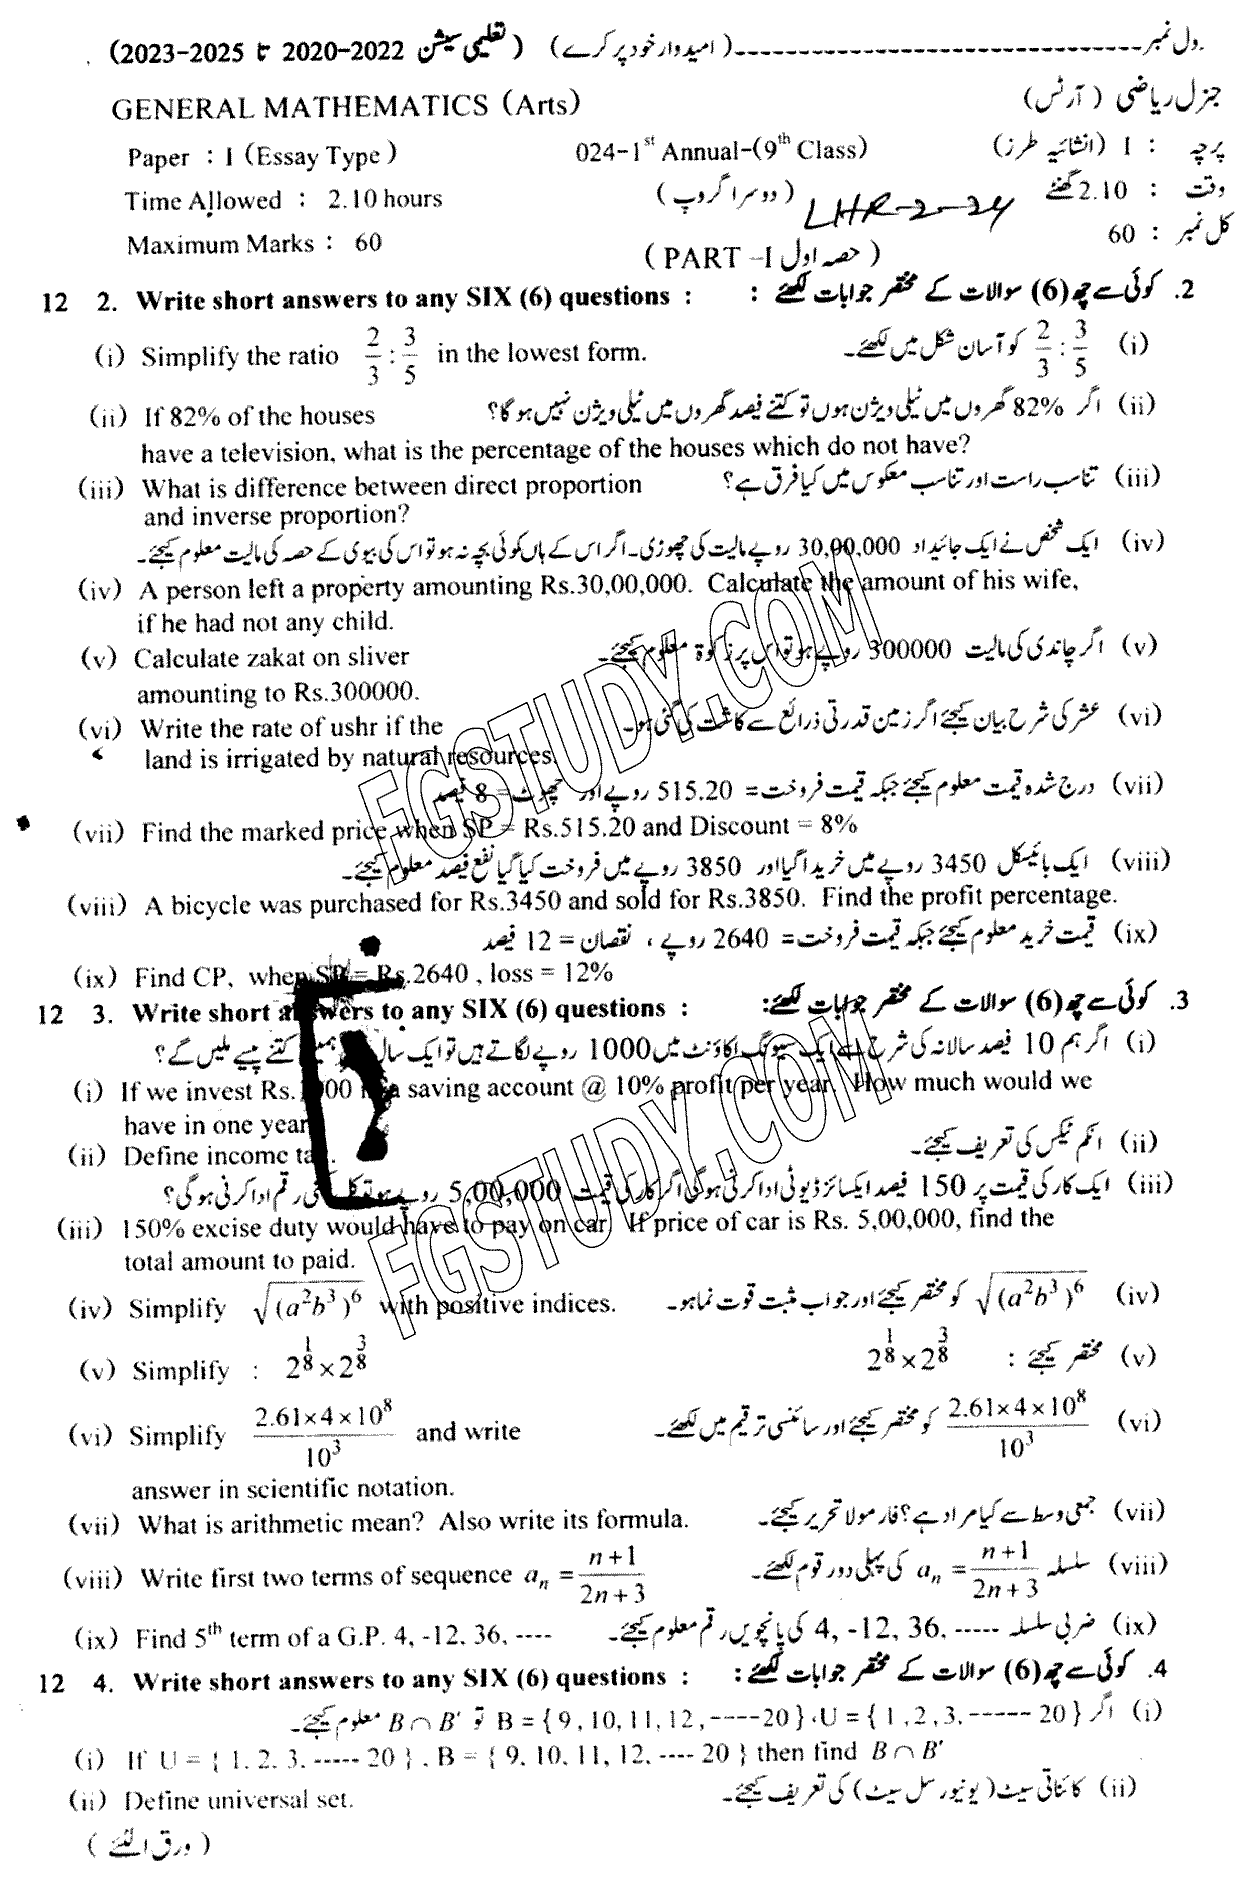 رول نمبر ------------------------------(امیدوار خود پر کرے) (تعلیمی سیشن 2022-2020 تا 2025-2023)
GENERAL MATHEMATICS (Arts) جنرل ریاضی (آرٹس)
Paper : I (Essay Type) 024-1st Annual-(9th Class) پرچہ : I (انشائیہ طرز)
Time Allowed : 2.10 hours (دوسرا گروپ) LHR-2-24 وقت : 2.10 گھنٹے
Maximum Marks : 60 (PART -I حصہ اول) کل نمبر : 60
12 2. Write short answers to any SIX (6) questions : 2. کوئی سے چھ (6) سوالات کے مختصر جوابات لکھئے :
(i) Simplify the ratio 2/3 : 3/5 in the lowest form. (i) 2/3 : 3/5 کو آسان شکل میں لکھئے۔
(ii) If 82% of the houses (ii) اگر 82% گھروں میں ٹیلی ویژن ہوں تو کتنے فیصد گھروں میں ٹیلی ویژن نہیں ہو گا؟
have a television, what is the percentage of the houses which do not have?
(iii) What is difference between direct proportion (iii) تناسب راست اور تناسب معکوس میں کیا فرق ہے؟
and inverse proportion?
(iv) ایک شخص نے ایک جائیداد 30,00,000 روپے مالیت کی چھوڑی۔ اگر اس کے ہاں کوئی بچہ نہ ہو تو اس کی بیوی کے حصہ کی مالیت معلوم کیجئے۔
(iv) A person left a property amounting Rs.30,00,000. Calculate the amount of his wife,
if he had not any child.
(v) Calculate zakat on sliver (v) اگر چاندی کی مالیت 300000 روپے ہو تو اس پر زکوٰۃ معلوم کیجئے۔
amounting to Rs.300000.
(vi) Write the rate of ushr if the (vi) عشر کی شرح بیان کیجئے اگر زمین قدرتی ذرائع سے کاشت کی گئی ہو۔
land is irrigated by natural resources.
(vii) درج شدہ قیمت معلوم کیجئے جبکہ قیمت فروخت = 515.20 روپے اور چھوٹ = 8 فیصد
(vii) Find the marked price when SP = Rs.515.20 and Discount = 8%
(viii) ایک بائیسکل 3450 روپے میں خریدا گیا اور 3850 روپے میں فروخت کیا گیا نفع فیصد معلوم کیجئے۔
(viii) A bicycle was purchased for Rs.3450 and sold for Rs.3850. Find the profit percentage.
(ix) قیمت خرید معلوم کیجئے جبکہ قیمت فروخت = 2640 روپے ، نقصان = 12 فیصد
(ix) Find CP, when SP = Rs.2640 , loss = 12%
12 3. Write short answers to any SIX (6) questions : 3. کوئی سے چھ (6) سوالات کے مختصر جوابات لکھئے:
(i) اگر ہم 10 فیصد سالانہ کی شرح سے ایک سیونگ اکاؤنٹ میں 1000 روپے لگاتے ہیں تو ایک سال ہمیں کتنے پیسے ملیں گے؟
(i) If we invest Rs.1000 in a saving account @ 10% profit per year. How much would we
have in one year
(ii) Define income tax. (ii) انکم ٹیکس کی تعریف کیجئے۔
(iii) ایک کار کی قیمت پر 150 فیصد ایکسائز ڈیوٹی ادا کرنی ہو گی اگر کار کی قیمت 5,00,000 روپے ہو تو کل کتنی رقم ادا کرنی ہو گی؟
(iii) 150% excise duty would have to pay on car. If price of car is Rs. 5,00,000, find the
total amount to paid.
(iv) Simplify √(a²b³)⁶ with positive indices. (iv) √(a²b³)⁶ کو مختصر کیجئے اور جواب مثبت قوت نما ہو۔
(v) Simplify : 2^(1/8) × 2^(3/8) (v) مختصر کیجئے : 2^(1/8) × 2^(3/8)
(vi) Simplify (2.61×4×10⁸)/10³ and write (vi) (2.61×4×10⁸)/10³ کو مختصر کیجئے اور سائنسی ترقیم میں لکھئے۔
answer in scientific notation.
(vii) What is arithmetic mean? Also write its formula. (vii) جمعی وسط سے کیا مراد ہے؟ فارمولا تحریر کیجئے۔
(viii) Write first two terms of sequence aₙ = (n+1)/(2n+3) (viii) سلسلہ aₙ = (n+1)/(2n+3) کی پہلی دو رقوم لکھئے۔
(ix) Find 5th term of a G.P. 4, -12, 36, ---- (ix) ضربی سلسلہ 4, -12, 36, ----- کی پانچویں رقم معلوم کیجئے۔
12 4. Write short answers to any SIX (6) questions : 4. کوئی سے چھ (6) سوالات کے مختصر جوابات لکھئے :
(i) اگر U = { 1 ,2 ,3, ----- 20 } ، B = { 9 , 10, 11, 12, ----20 } تو B ∩ B′ معلوم کیجئے۔
(i) If U = { 1, 2, 3, ----- 20 } , B = { 9, 10, 11, 12, ---- 20 } then find B ∩ B′
(ii) Define universal set. (ii) کائناتی سیٹ (یونیورسل سیٹ) کی تعریف کیجئے۔
(ورق الٹئے)
FGSTUDY.COM
FGSTUDY.COM